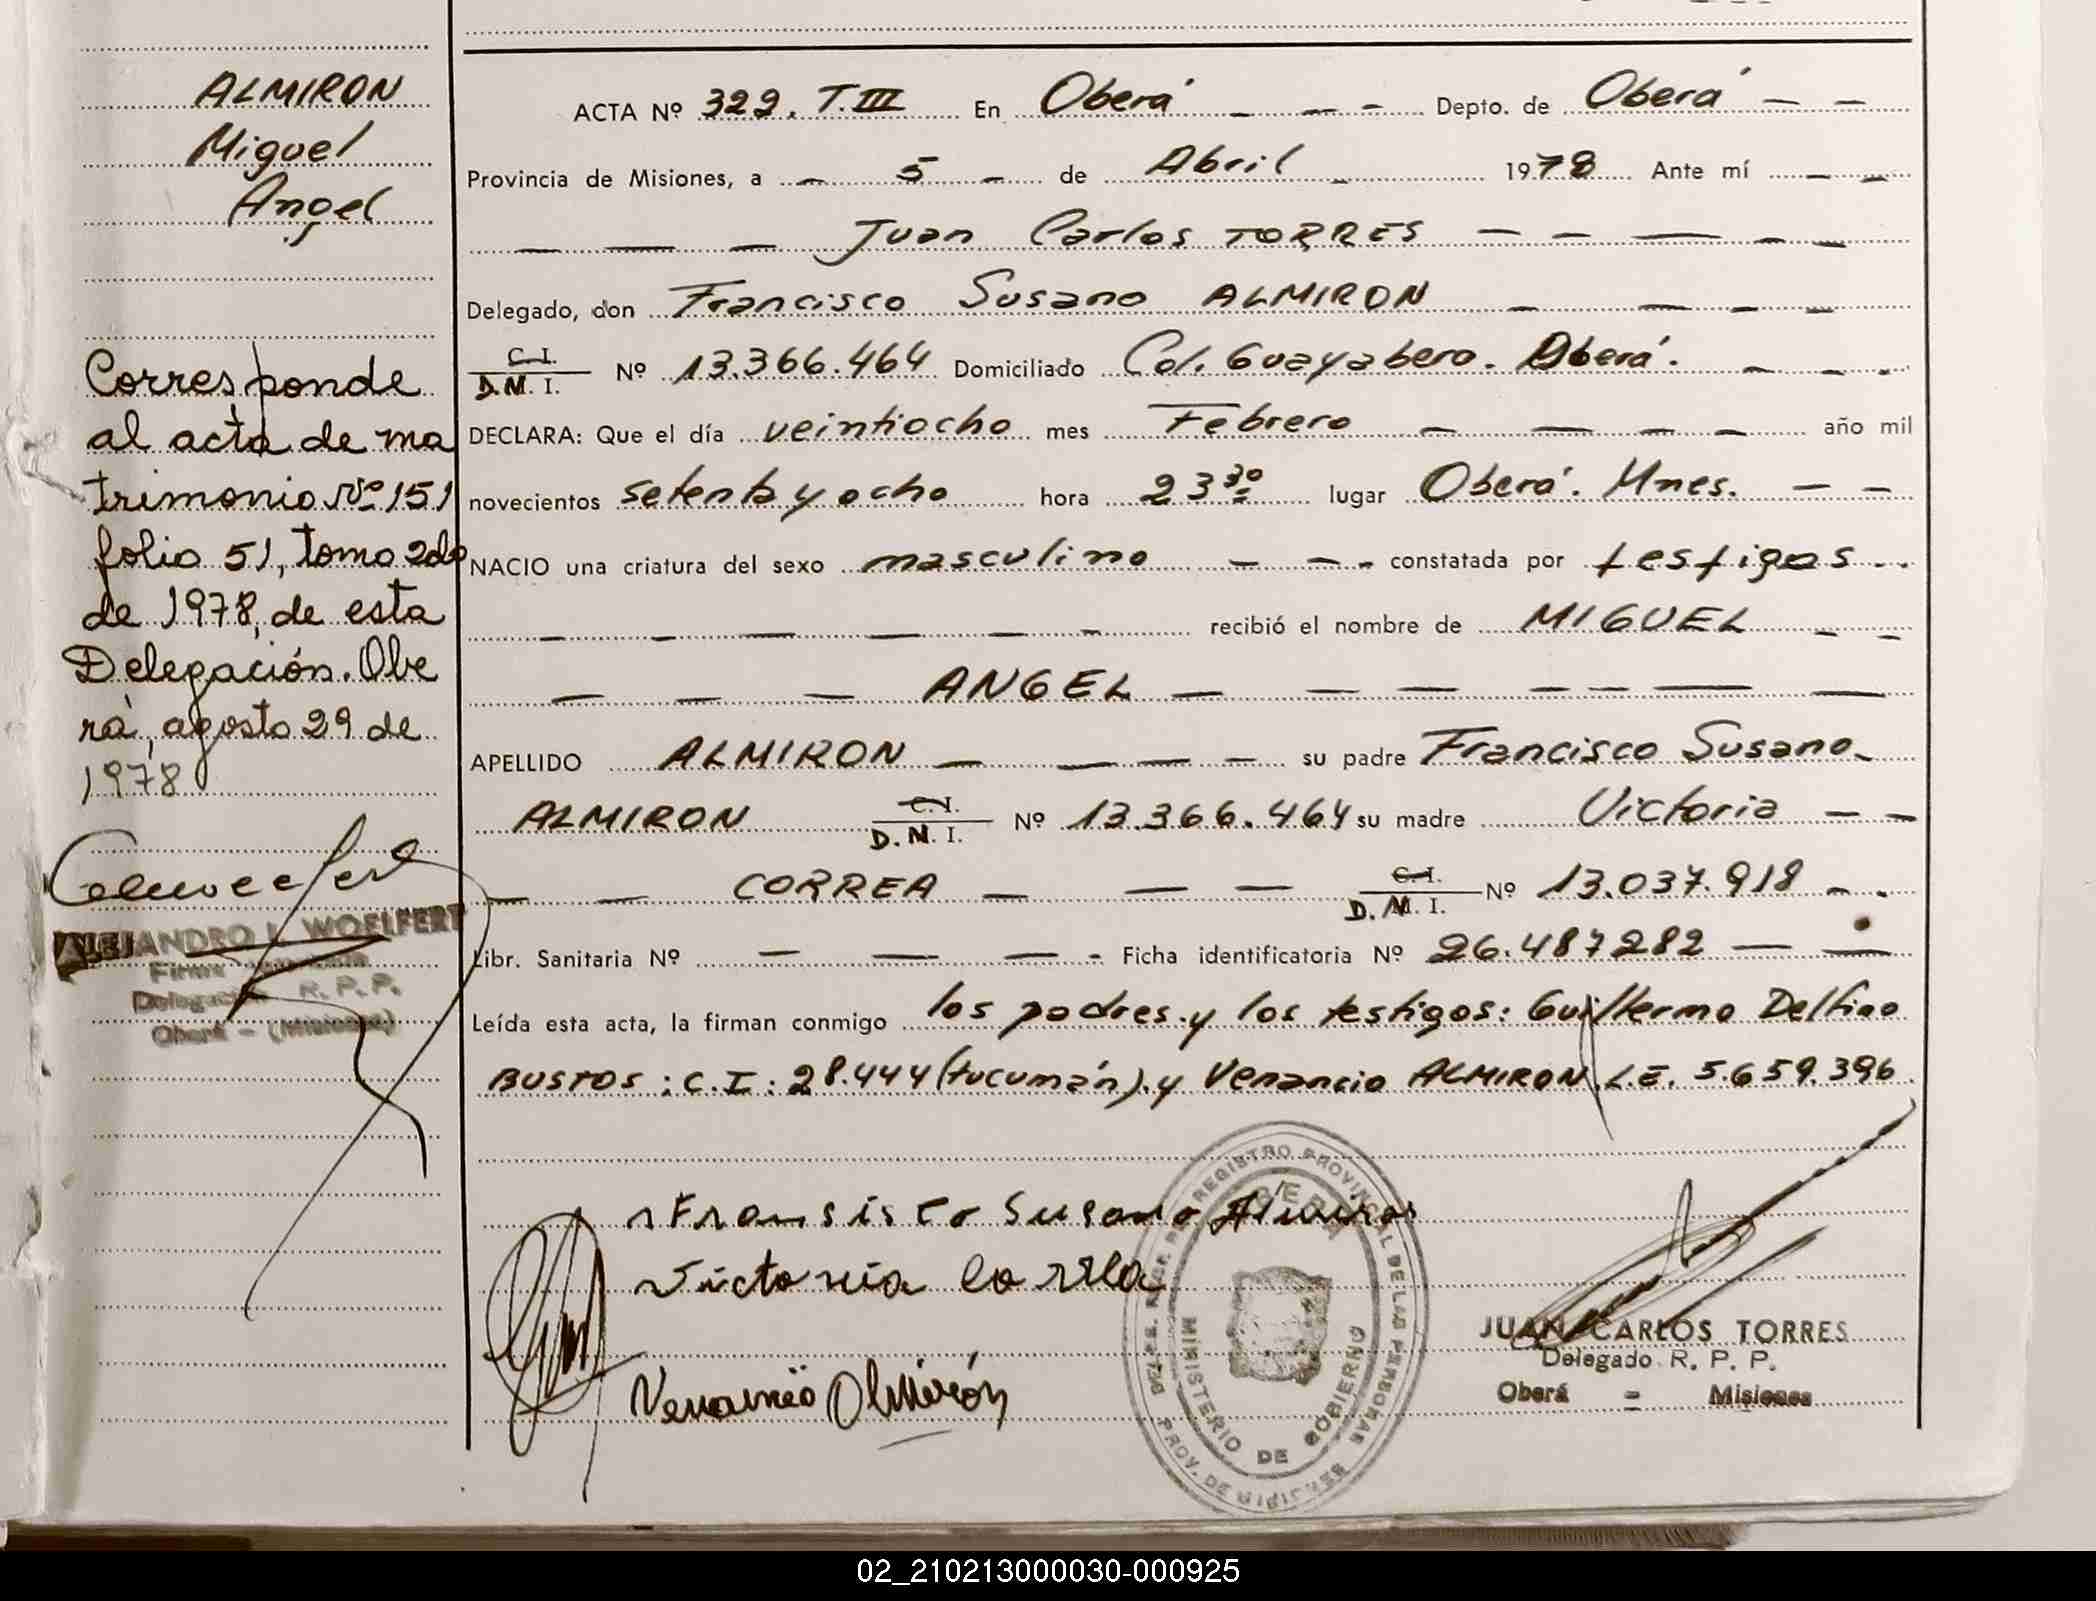 ALMIRON
Miguel
Angel
Corresponde
al acta de ma
trimonio Nº 151
folio 51, tomo 2do
de 1978, de esta
Delegación. Obe
rá, agosto 29 de
1978
ALEJANDRO L. WOELFERT
Firma
Delegación R. P. P.
Oberá - (Misiones)
ACTA Nº 322. T. III En Oberá - - - Depto. de Oberá - -
Provincia de Misiones, a - 5 - de Abril - 1978 Ante mí - -
- - - Juan Carlos TORRES - - - - -
Delegado, don Francisco Susano ALMIRON - - - -
C.I.
D.N.I. Nº 13.366.464 Domiciliado Col. Guayabero. Oberá. - - -
DECLARA: Que el día veintiocho mes Febrero - - - - año mil
novecientos setenta y ocho hora 23 30 lugar Oberá. Mnes. - -
NACIO una criatura del sexo masculino - - - constatada por testigos - -
- - - - - - recibió el nombre de MIGUEL - -
- - - ANGEL - - - - - - -
APELLIDO ALMIRON - - - - su padre Francisco Susano -
ALMIRON C.I.
D.N.I. Nº 13.366.464 su madre Victoria - -
- - CORREA - - - C.I.
D.N.I. Nº 13.037.918 - -
Libr. Sanitaria Nº - - - - Ficha identificatoria Nº 26.487282 - -
Leída esta acta, la firman conmigo los padres y los testigos: Guillermo Delfino
BUSTOS : C.I : 28.444 (tucumán). y Venancio ALMIRON L.E. 5.659.396
Fransisco Susano Almiron
Victoria
Venancio Almirón
REGISTRO PROVINCIAL DE LAS PERSONAS
OBERA
MINISTERIO DE GOBIERNO
PROV. DE MISIONES
JUAN CARLOS TORRES
Delegado R. P. P.
Oberá - Misiones
02_210213000030-000925